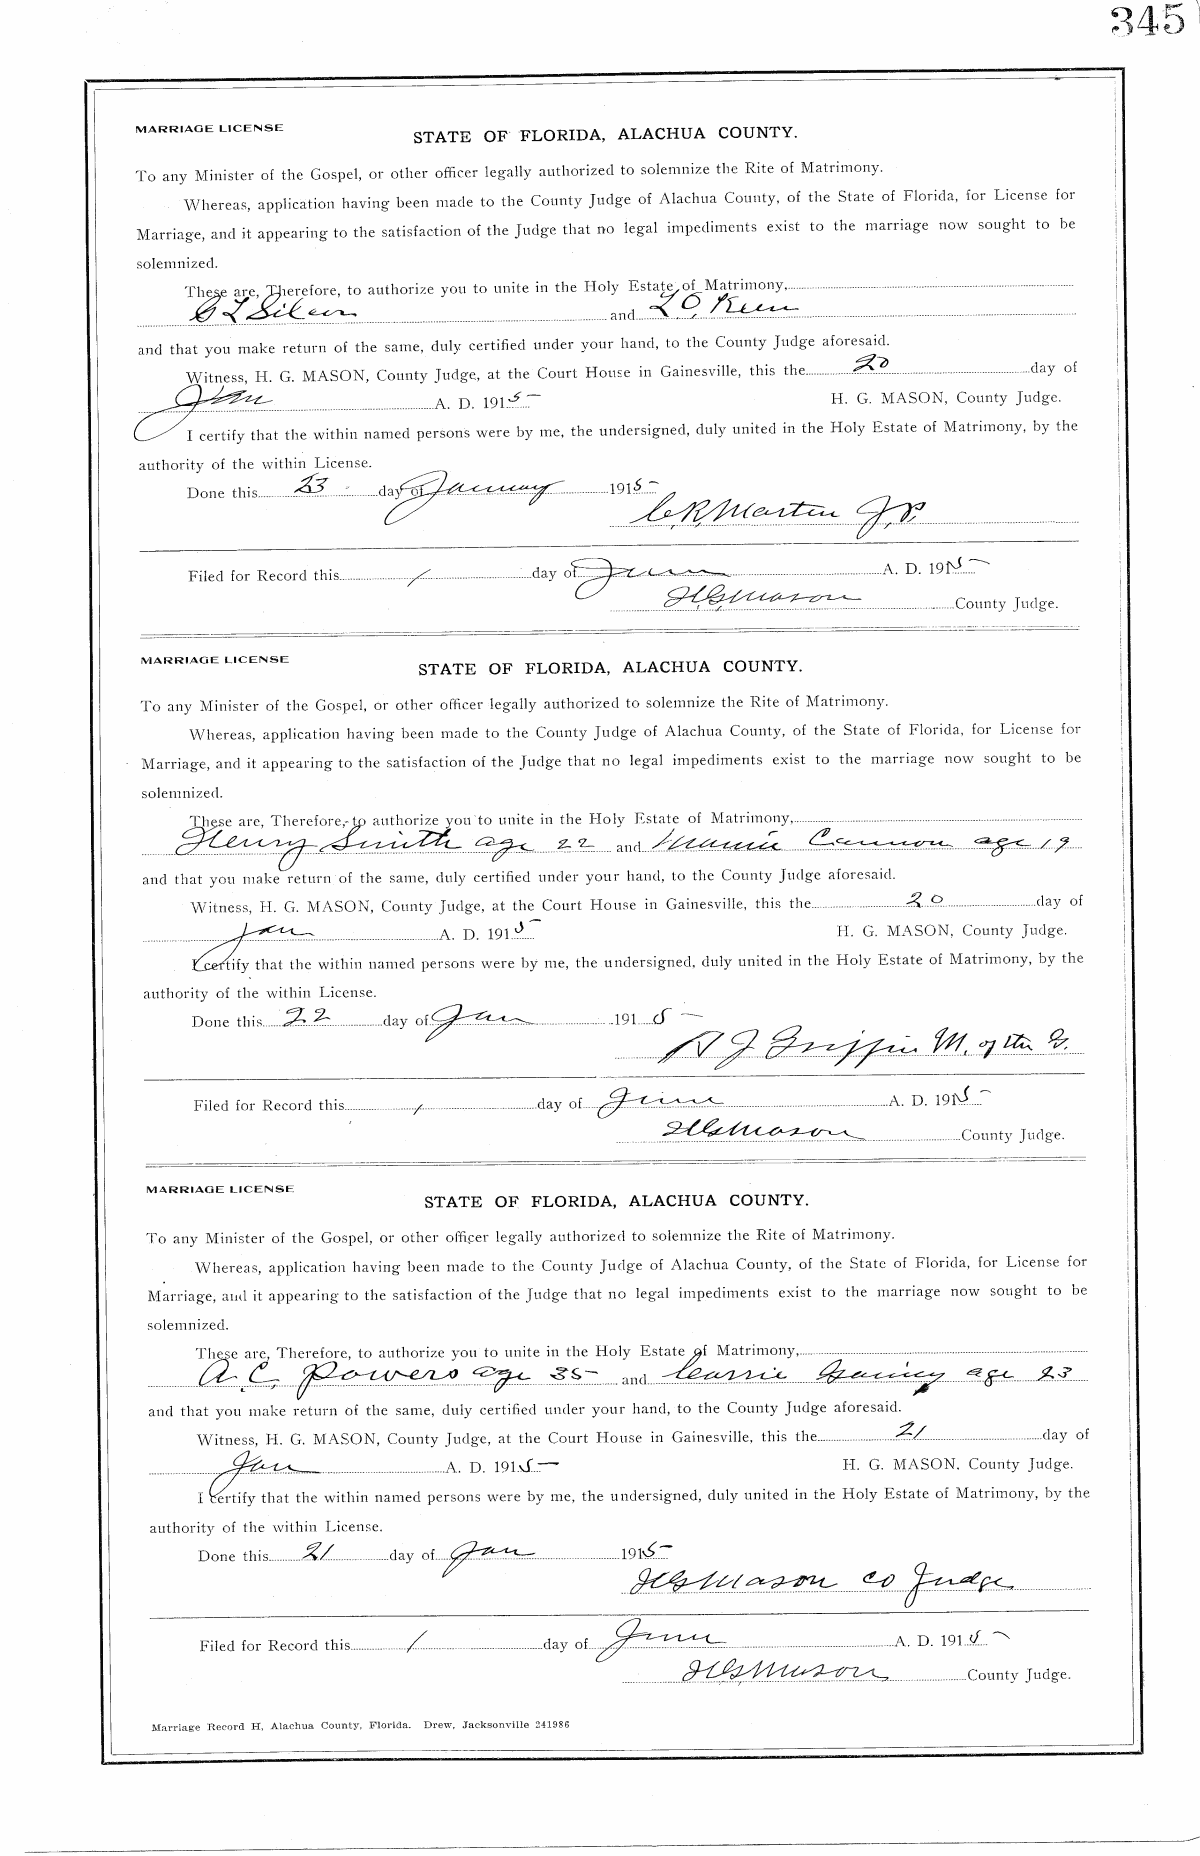 345
MARRIAGE LICENSE
STATE OF FLORIDA, ALACHUA COUNTY.
To any Minister of the Gospel, or other officer legally authorized to solemnize the Rite of Matrimony.
Whereas, application having been made to the County Judge of Alachua County, of the State of Florida, for License for
Marriage, and it appearing to the satisfaction of the Judge that no legal impediments exist to the marriage now sought to be
solemnized.
These are, Therefore, to authorize you to unite in the Holy Estate of Matrimony,
L and L O, Keen
and that you make return of the same, duly certified under your hand, to the County Judge aforesaid.
Witness, H. G. MASON, County Judge, at the Court House in Gainesville, this the 20 day of
Jan A. D. 1915 H. G. MASON, County Judge.
I certify that the within named persons were by me, the undersigned, duly united in the Holy Estate of Matrimony, by the
authority of the within License.
Done this 23 day of January 1915
C.R. Martin J.P.
Filed for Record this 1 day of June A. D. 1915
H.G. Mason County Judge.
MARRIAGE LICENSE
STATE OF FLORIDA, ALACHUA COUNTY.
To any Minister of the Gospel, or other officer legally authorized to solemnize the Rite of Matrimony.
Whereas, application having been made to the County Judge of Alachua County, of the State of Florida, for License for
Marriage, and it appearing to the satisfaction of the Judge that no legal impediments exist to the marriage now sought to be
solemnized.
These are, Therefore, to authorize you to unite in the Holy Estate of Matrimony,
Henry Smith age 22 and Mamie Cannon age 19
and that you make return of the same, duly certified under your hand, to the County Judge aforesaid.
Witness, H. G. MASON, County Judge, at the Court House in Gainesville, this the 20 day of
Jan A. D. 1915 H. G. MASON, County Judge.
I certify that the within named persons were by me, the undersigned, duly united in the Holy Estate of Matrimony, by the
authority of the within License.
Done this 22 day of Jan 1915
J Griffin M. of the G.
Filed for Record this 1 day of June A. D. 1915
H G Mason County Judge.
MARRIAGE LICENSE
STATE OF FLORIDA, ALACHUA COUNTY.
To any Minister of the Gospel, or other officer legally authorized to solemnize the Rite of Matrimony.
Whereas, application having been made to the County Judge of Alachua County, of the State of Florida, for License for
Marriage, and it appearing to the satisfaction of the Judge that no legal impediments exist to the marriage now sought to be
solemnized.
These are, Therefore, to authorize you to unite in the Holy Estate of Matrimony,
A. C. Powers age 35 and Carrie Gainey age 23
and that you make return of the same, duly certified under your hand, to the County Judge aforesaid.
Witness, H. G. MASON, County Judge, at the Court House in Gainesville, this the 21 day of
Jan A. D. 1915 H. G. MASON, County Judge.
I certify that the within named persons were by me, the undersigned, duly united in the Holy Estate of Matrimony, by the
authority of the within License.
Done this 21 day of Jan 1915
H G Mason Co Judge
Filed for Record this 1 day of June A. D. 1915
H G Mason County Judge.
Marriage Record H, Alachua County, Florida. Drew, Jacksonville 241986